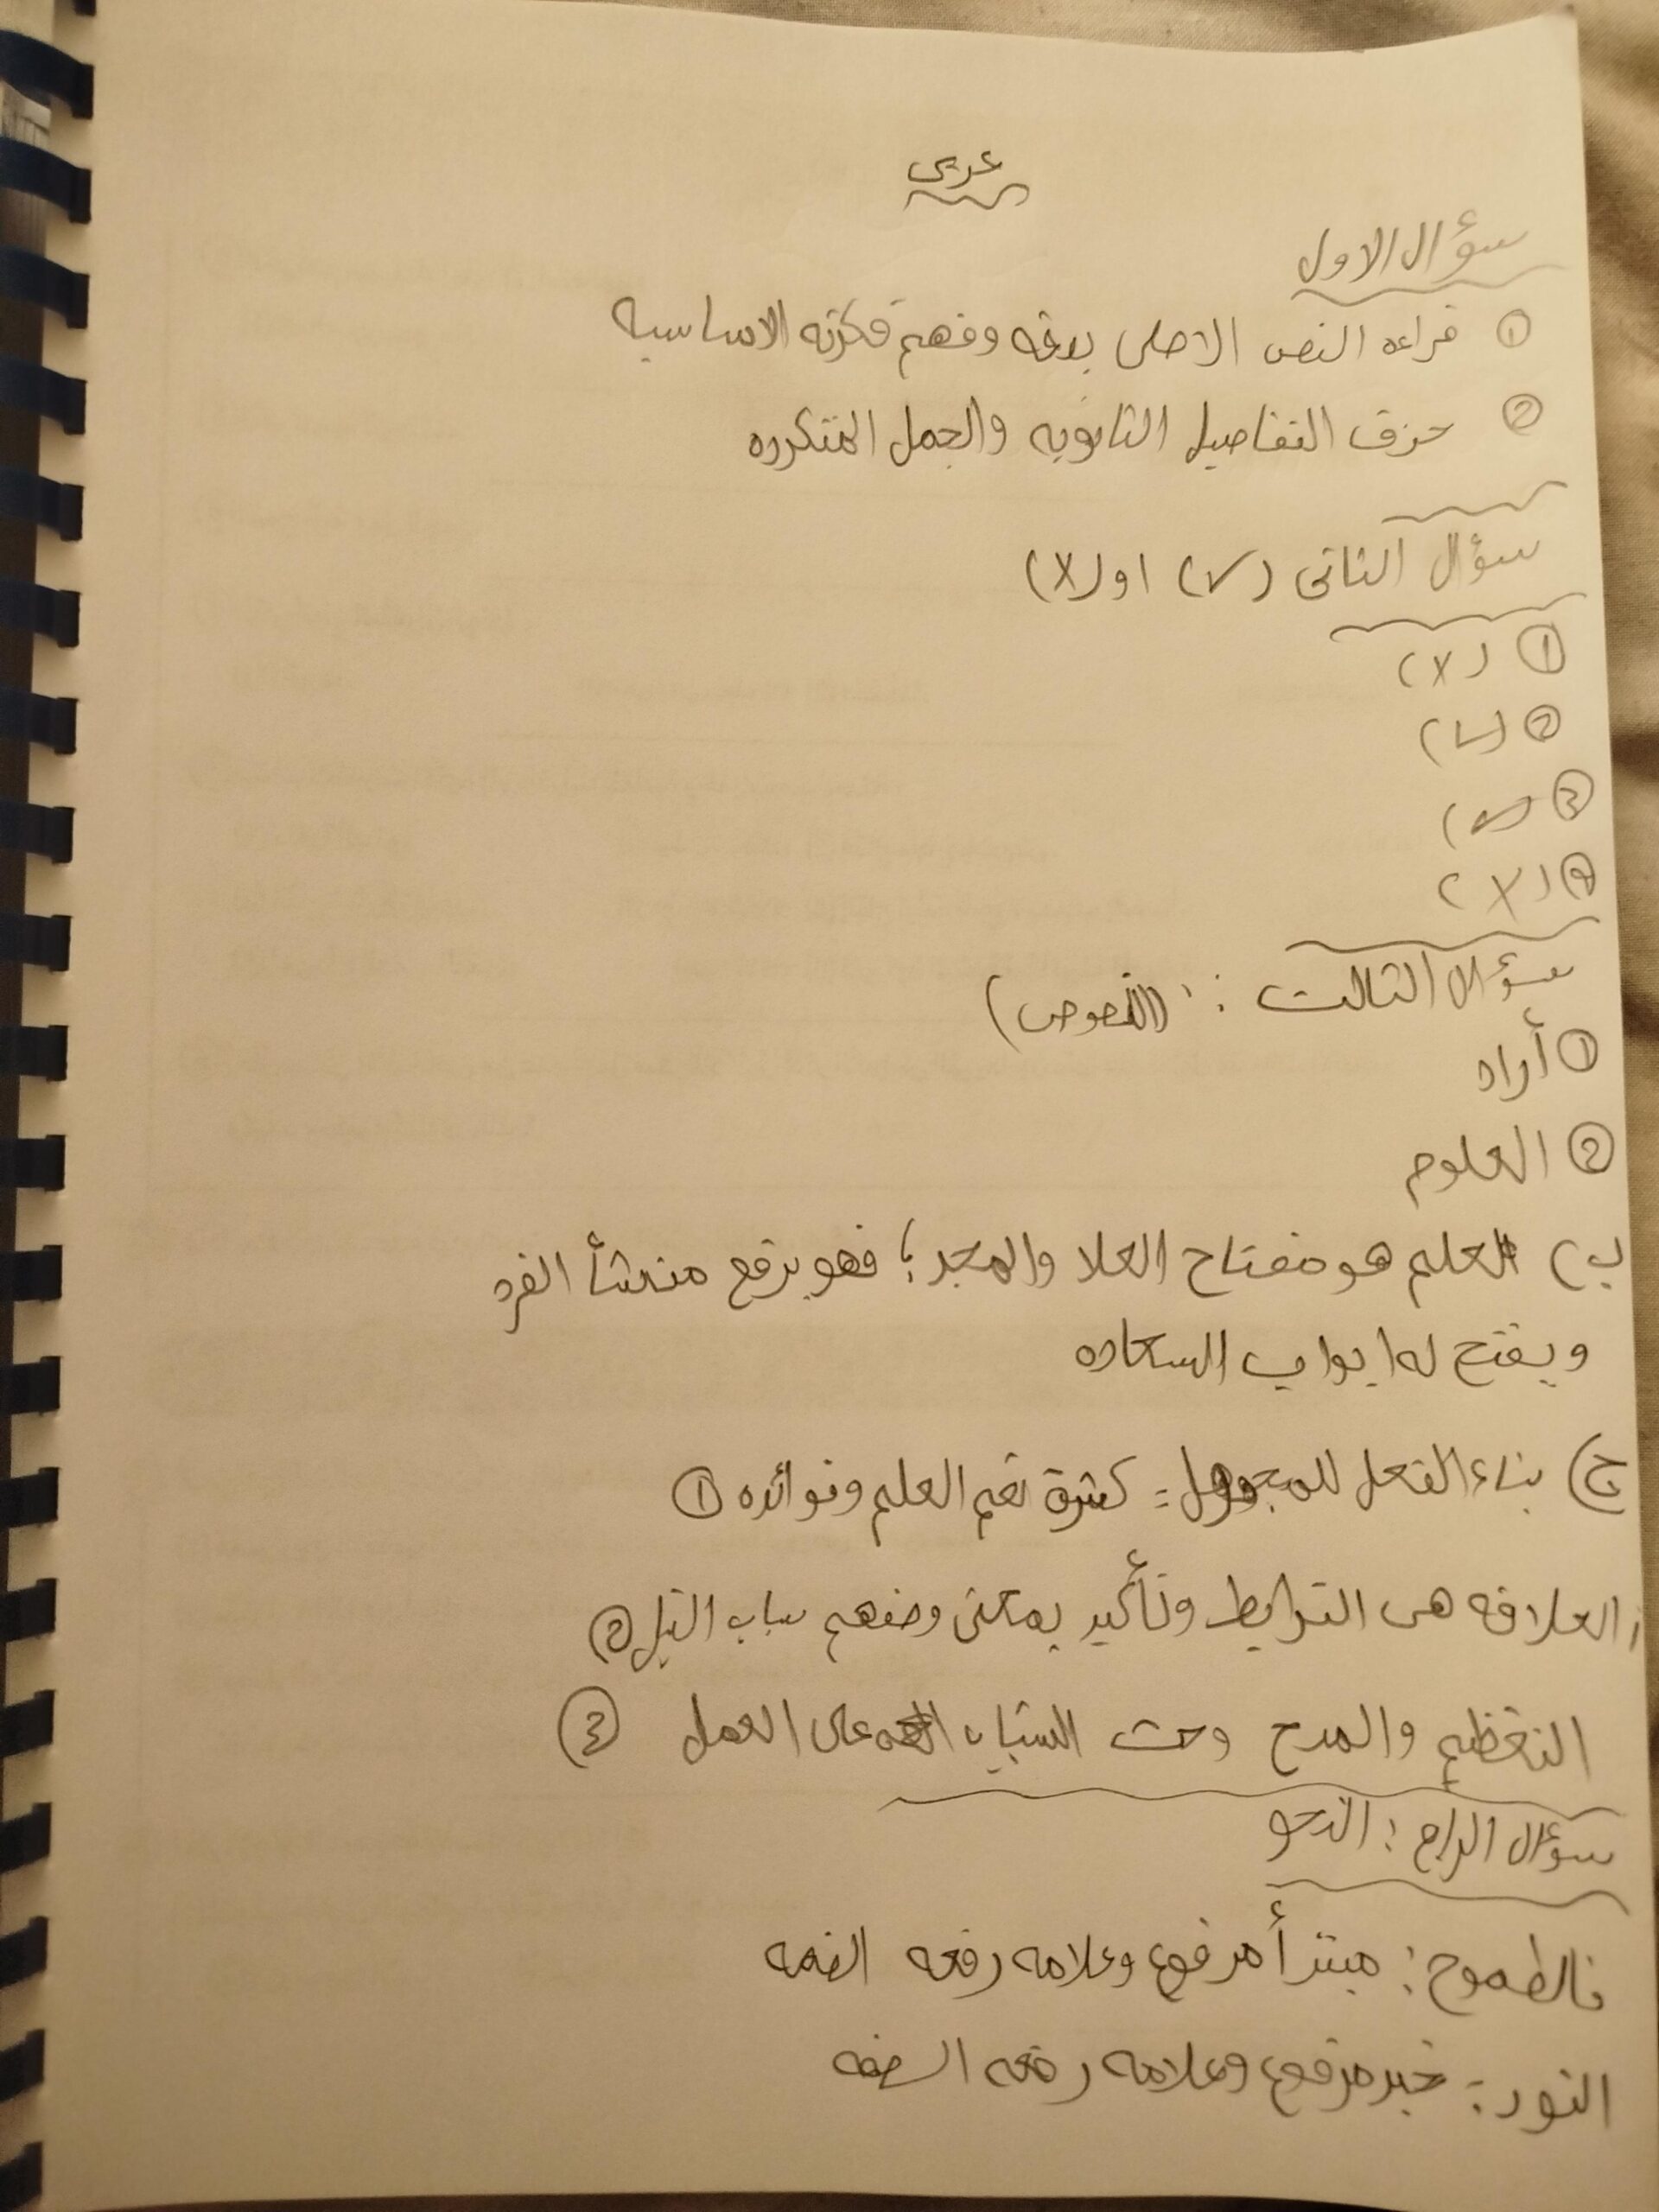 عربى
سؤال الاول
① قراءه النص الاصلى بدقه وفهم فكرته الاساسيه
② حزف التفاصيل الثانويه والجمل المتكرره
سؤال الثانى (✓) او (X)
① (X)
② (✓)
③ (✓)
④ (X)
سؤال الثالث : (النصوص)
① أراد
② العلوم
ب) العلم هو مفتاح العلا والمجد ؛ فهو يرفع من شأ الفرد
ويفتح له ابواب السعاده
ج) بناء الفعل للمجهول = كثرة نعم العلم وفوائده ①
العلاقه هى الترابط وتأكيد يمعنى وصفهم بباب النيل ②
التعظيم والمدح وحث الشباب على العمل ③
سؤال الرابع : النحو
فالطموح : مبتدأ مرفوع وعلامه رفعه الضمه
النور : خبر مرفوع وعلامه رفعه الضمه